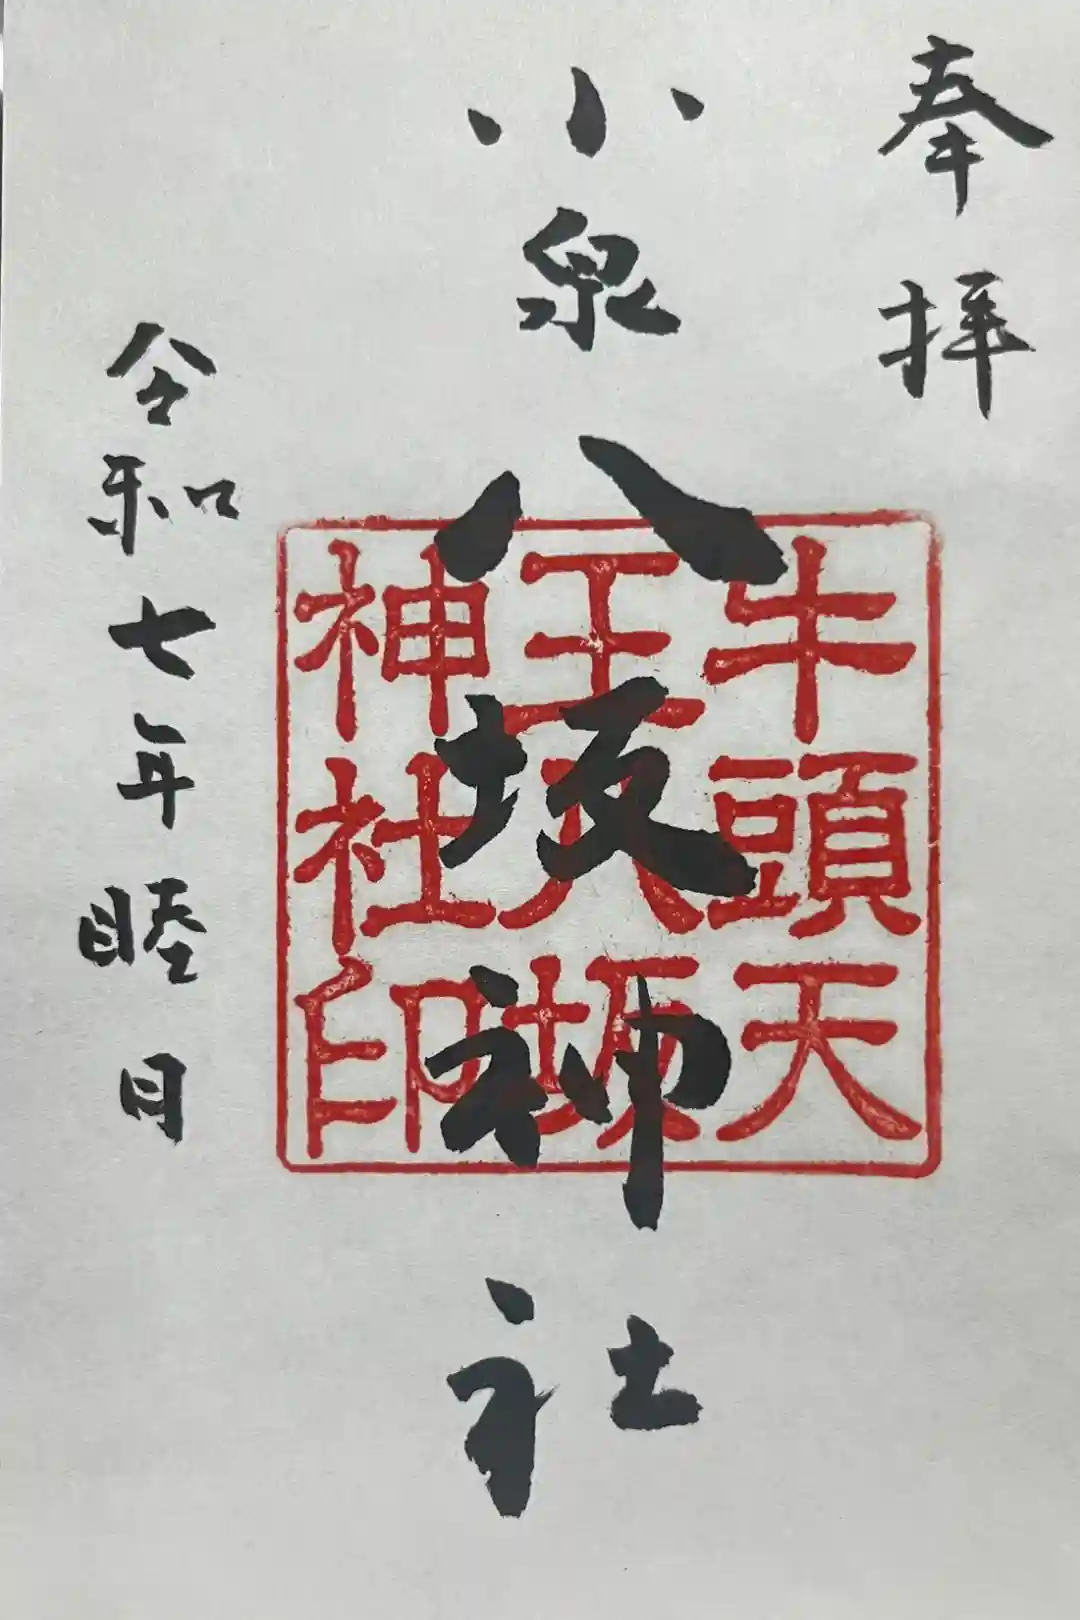 奉拝
小泉
八坂神社
牛頭天
王八坂
神社印
令和七年睦日